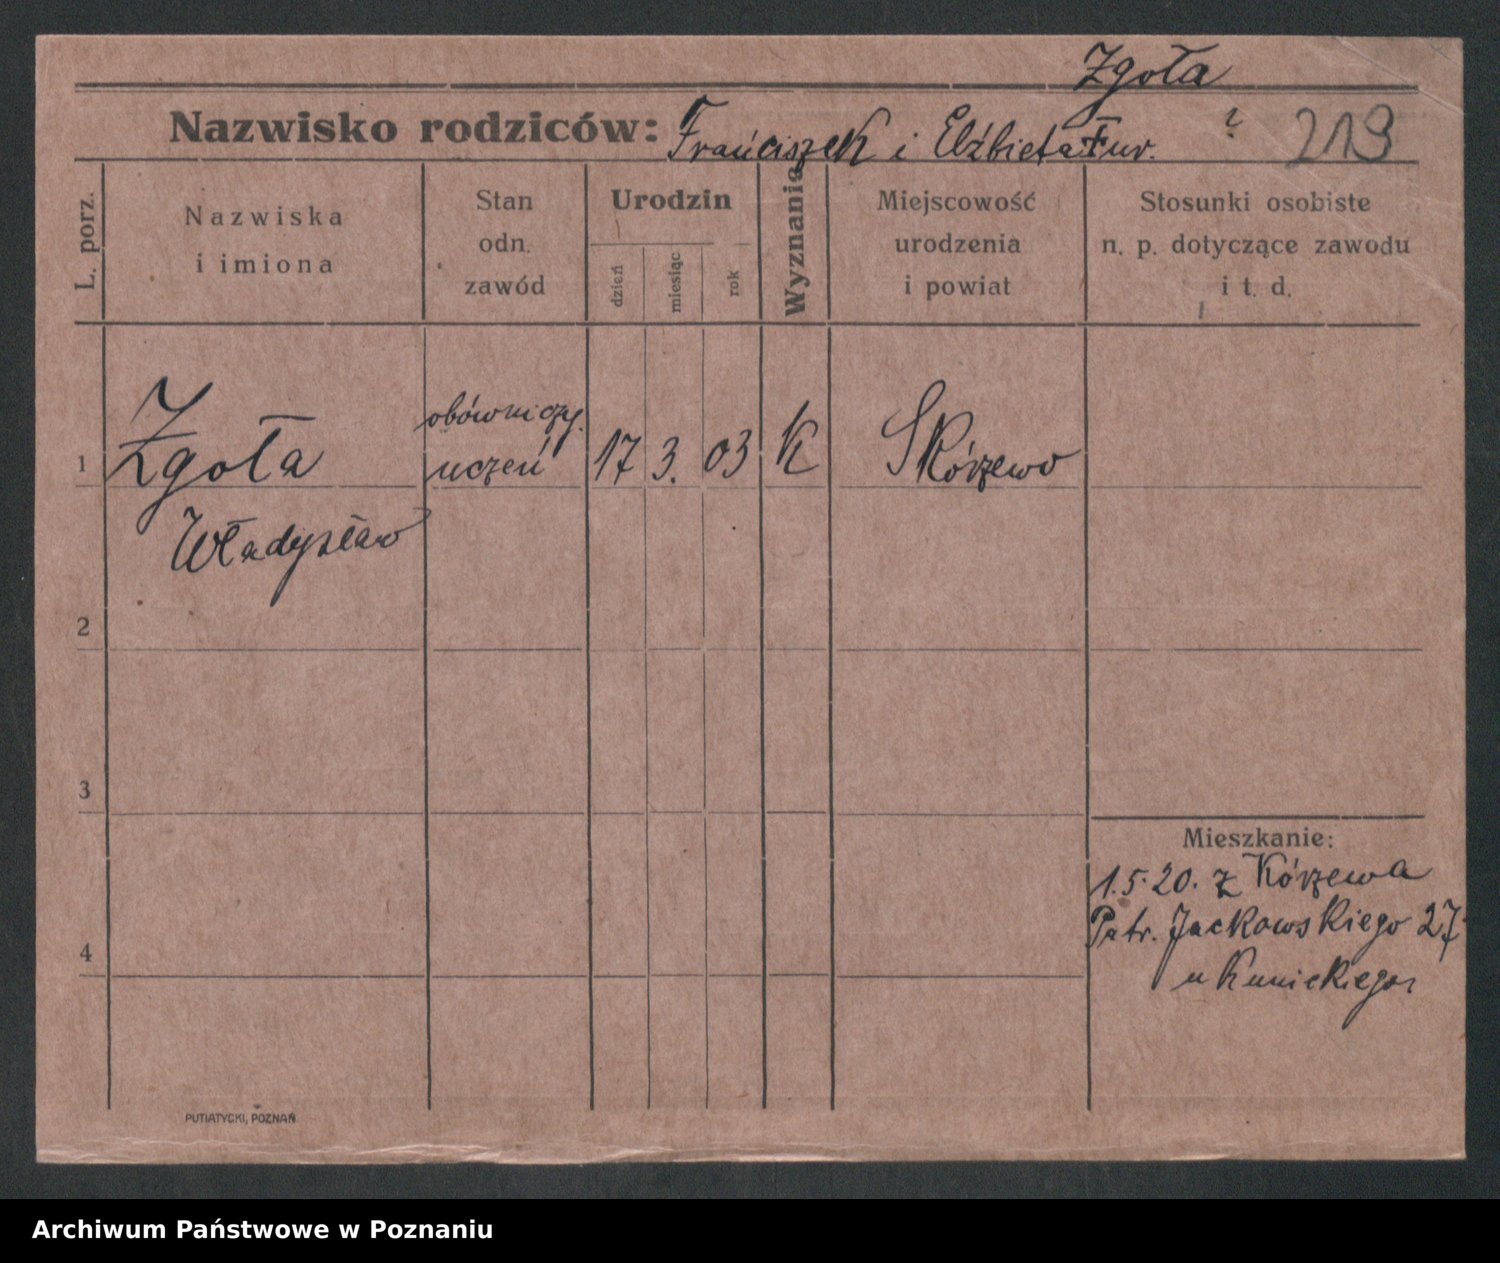 Zgoła
Nazwisko rodziców: Franciszek i Elżbieta Fur. ? 219
L. porz.
Nazwiska
i imiona
Stan
odn.
zawód
Urodzin
dzień
miesiąc
rok
Wyznania
Miejscowość
urodzenia
i powiat
Stosunki osobiste
n. p. dotyczące zawodu
i t. d.
1 Zgoła obówniczy. uczeń 17 3. 03 K Skórzewo
Władysław
2
3
4
Mieszkanie:
1.5.20. z Kórzewa
Patr. Jackowskiego 27
u Kunickiego
PUTIATYCKI, POZNAŃ
Archiwum Państwowe w Poznaniu